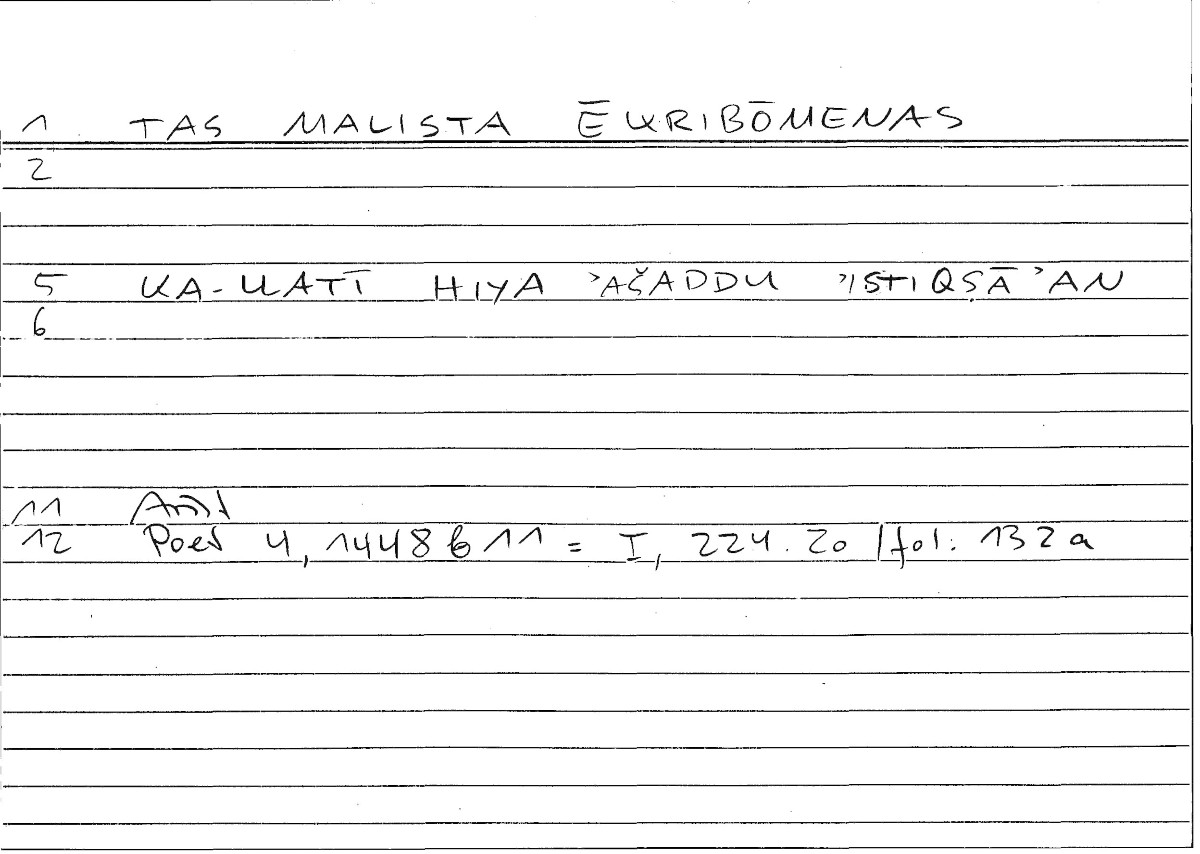 1 TAS MALISTA ĒKRIBŌMENAS
2
5 KA-LLATĪ HIYA ʾAŠADDU ʾISTIQṢĀʾAN
6
11 Arist
12 Poet 4, 1448b11 = I, 224.20 / fol. 132a